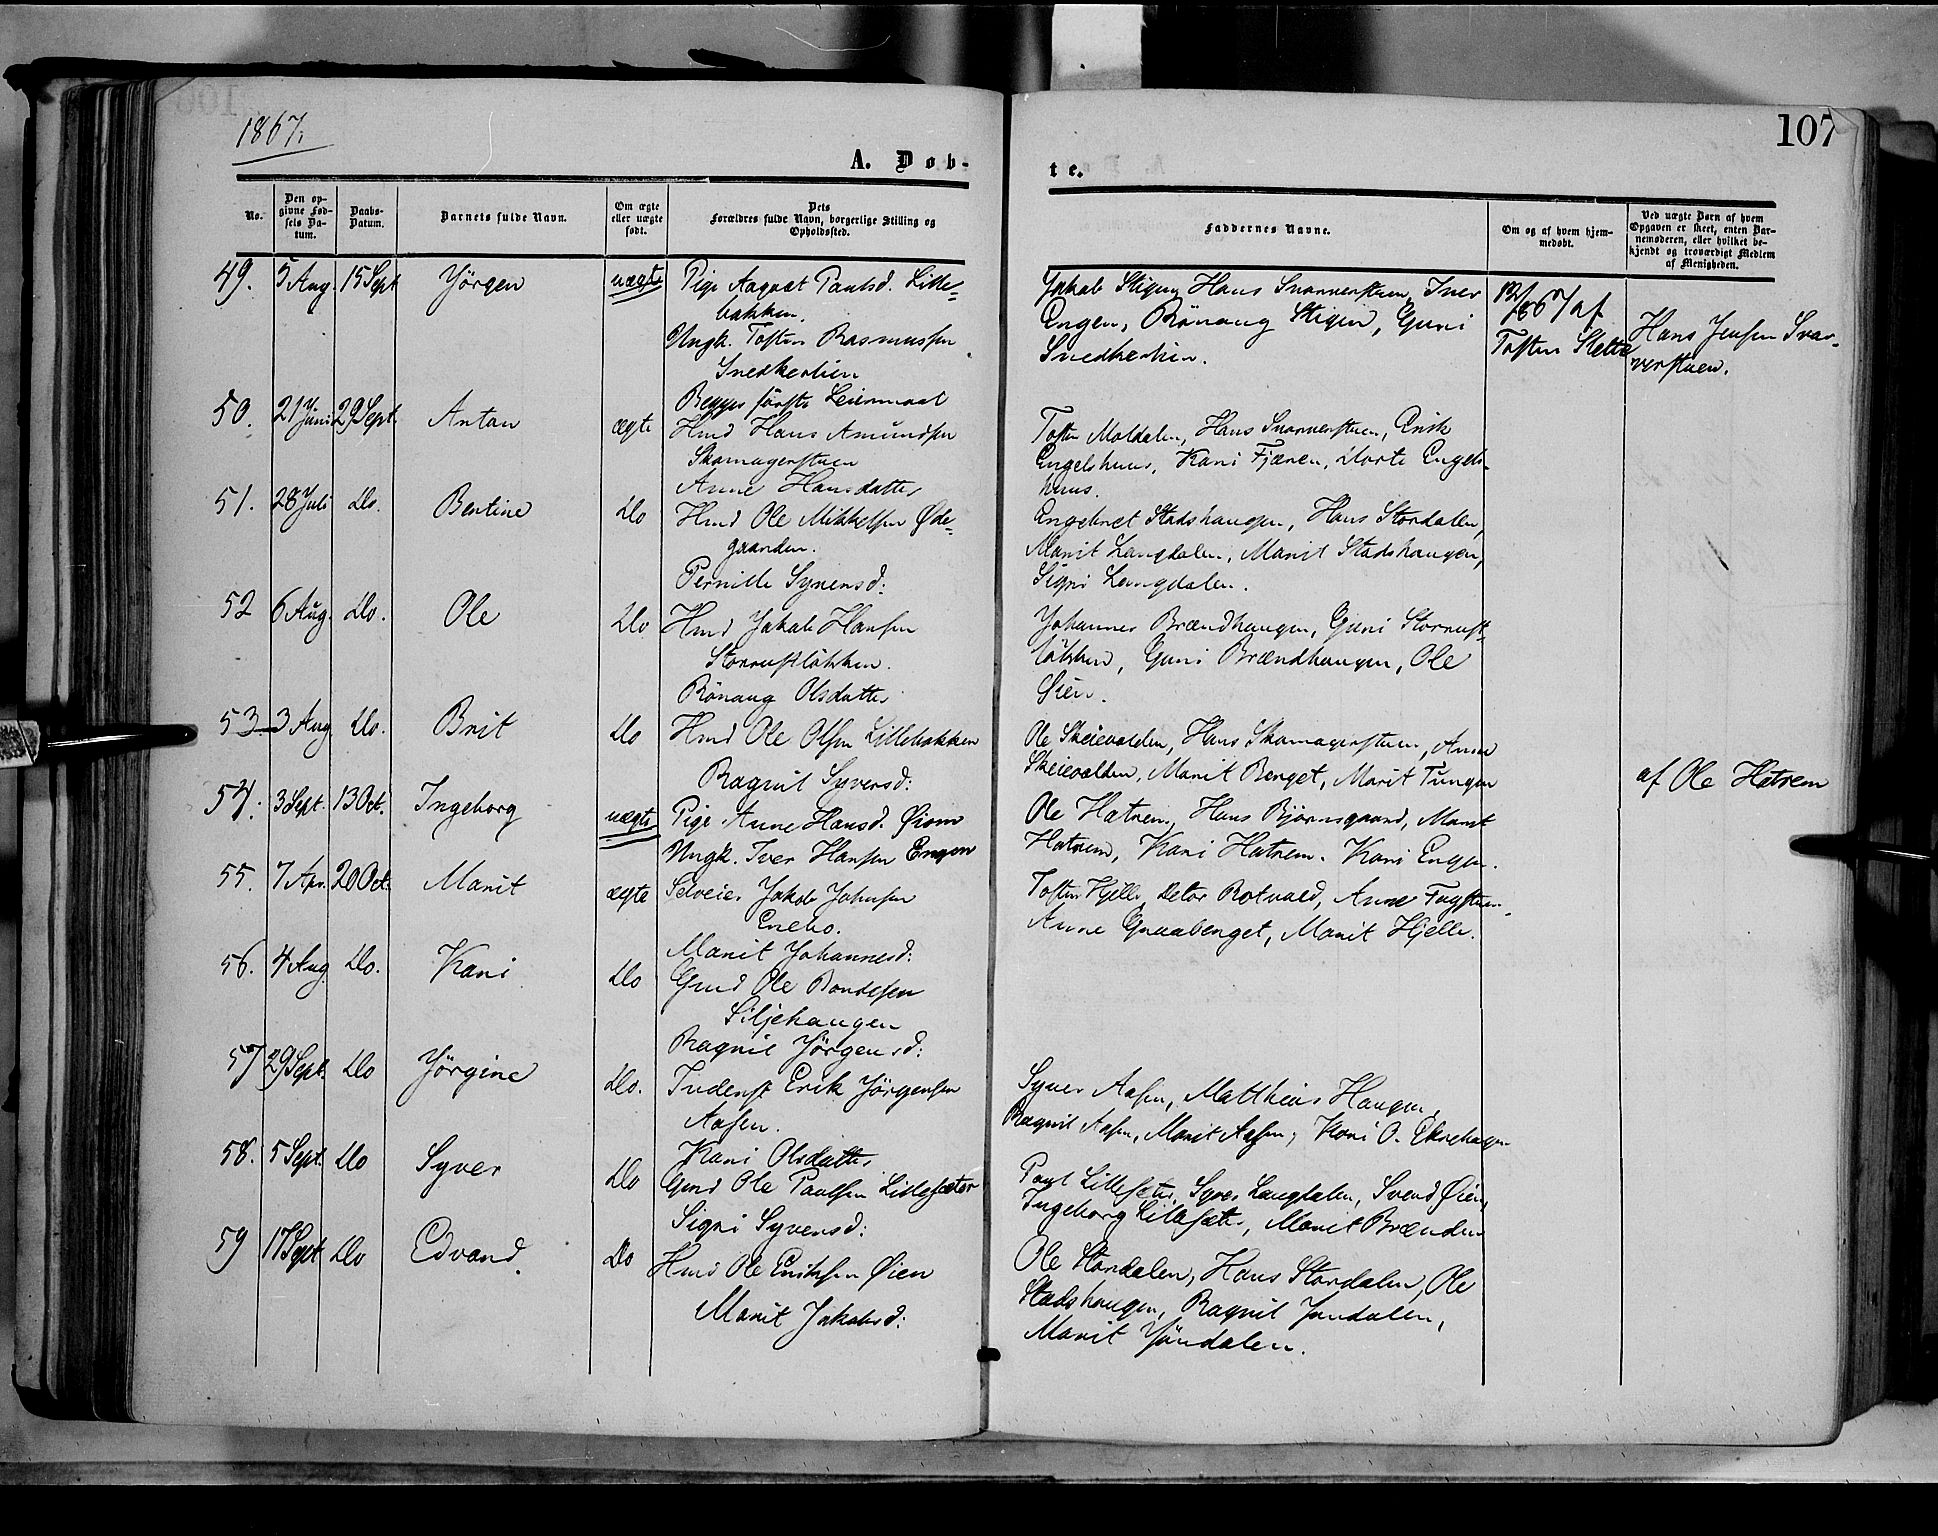 1867.
107
A. Døb-
te.
No.
Den op-
givne Fød-
sels Da-
tum.
Daabs-
Datum.
Barnets fulde Navn.
Om ægte
eller uægte
født.
Dets
Forældres fulde Navn, borgerlige Stilling og
Opholdssted.
Faddernes Navne.
Om og af hvem hjem-
medøbt.
Ved uægte Børn af hvem
Opgaven er skeet, enten Bar-
nemoderen, eller hvilket be-
kjendt og troværdigt Medlem
af Menigheden.
49. 5 Aug. 15 Sept Jörgen uægte Pige Aagaat Paulsd. Lille-
bakken.
Ungk. Tosten Rasmussen
Snedkerlien
Begges förste Leiermaal
Jakob Stigen, Hans Svarverstuen, Iver
Engen, Rönaug Stigen, Guni
Snedkerlien.
67 af
Tosten Slette
Hans Jensen Svar-
verstuen.
50. 21 Juni 29 Sept. Anton ægte Hmd Hans Amundsen
Skomagerstuen
Anne Hansdatter
Tosten Moldalen, Hans Svarverstuen, Erik
Engelshuus, Kari Fjæren, Dorte Engels-
huus.
51. 28 Juli Do. Bertine Do Hmd Ole Mikkelsen Øde-
gaarden.
Pernille Syversd:
Engebret Stadshaugen, Hans Stordalen,
Marit Langdalen, Marit Stadshaugen,
Sigri Langdalen.
52 6 Aug. Do. Ole Do Hmd Jakob Hansen
Storrustløkken.
Rönaug Olsdatter
Johannes Brændhaugen, Guni Storrust-
løkken, Guni Brændhaugen, Ole
Øien.
53 3 Aug Do. Brit Do Hmd Ole Olsen Lillebakken
Ragnil Syversd:
Ole Skeievolden, Hans Skomagerstuen, Anne
Skeievolden, Marit Berget, Marit Tungen
54. 3 Sept. 13 Oct. Ingeborg uægte Pige Anne Hansd. Øiom
Ungk. Iver Hansen Engen
Ole Hatrem, Hans Bjørnsgaard, Marit
Hatrem, Kari Hatrem. Kari Engen.
af Ole Hatrem
55. 7 Apr. 20 Oct. Marit ægte Selveier Jakob Johnsen
Enebo.
Marit Johannesd:
Tosten Hjelle, Detor Rotvold, Anne
Anne Graaberget, Marit Hjelle.
56. 4 Aug Do. Kari Do Gmd Ole Bondesen
Siljehaugen
Ragnil Jörgensd:
57 29 Sept. Do Jörgine Do. Inderst Erik Jörgensen
Aasen.
Kari Olsdatter
Syver Aasen, Matthias Haugen,
Ragnil Aasen, Marit Aasen, Kari O. Ekrehagen
58. 5 Sept. Do Syver Do Gmd Ole Paulsen Lillesæter
Sigri Syversd:
Paul Lillesæter, Syver Langdalen, Svend Øien,
Ingeborg Lillesæter, Marit Brænden
59 17 Sept Do Edvard. Do Hmd Ole Eriksen Øien
Marit Jakobsd:
Ole Stordalen, Hans Stordalen, Ole
Stadshaugen, Ragnil Jöndalen,
Marit Jöndalen.